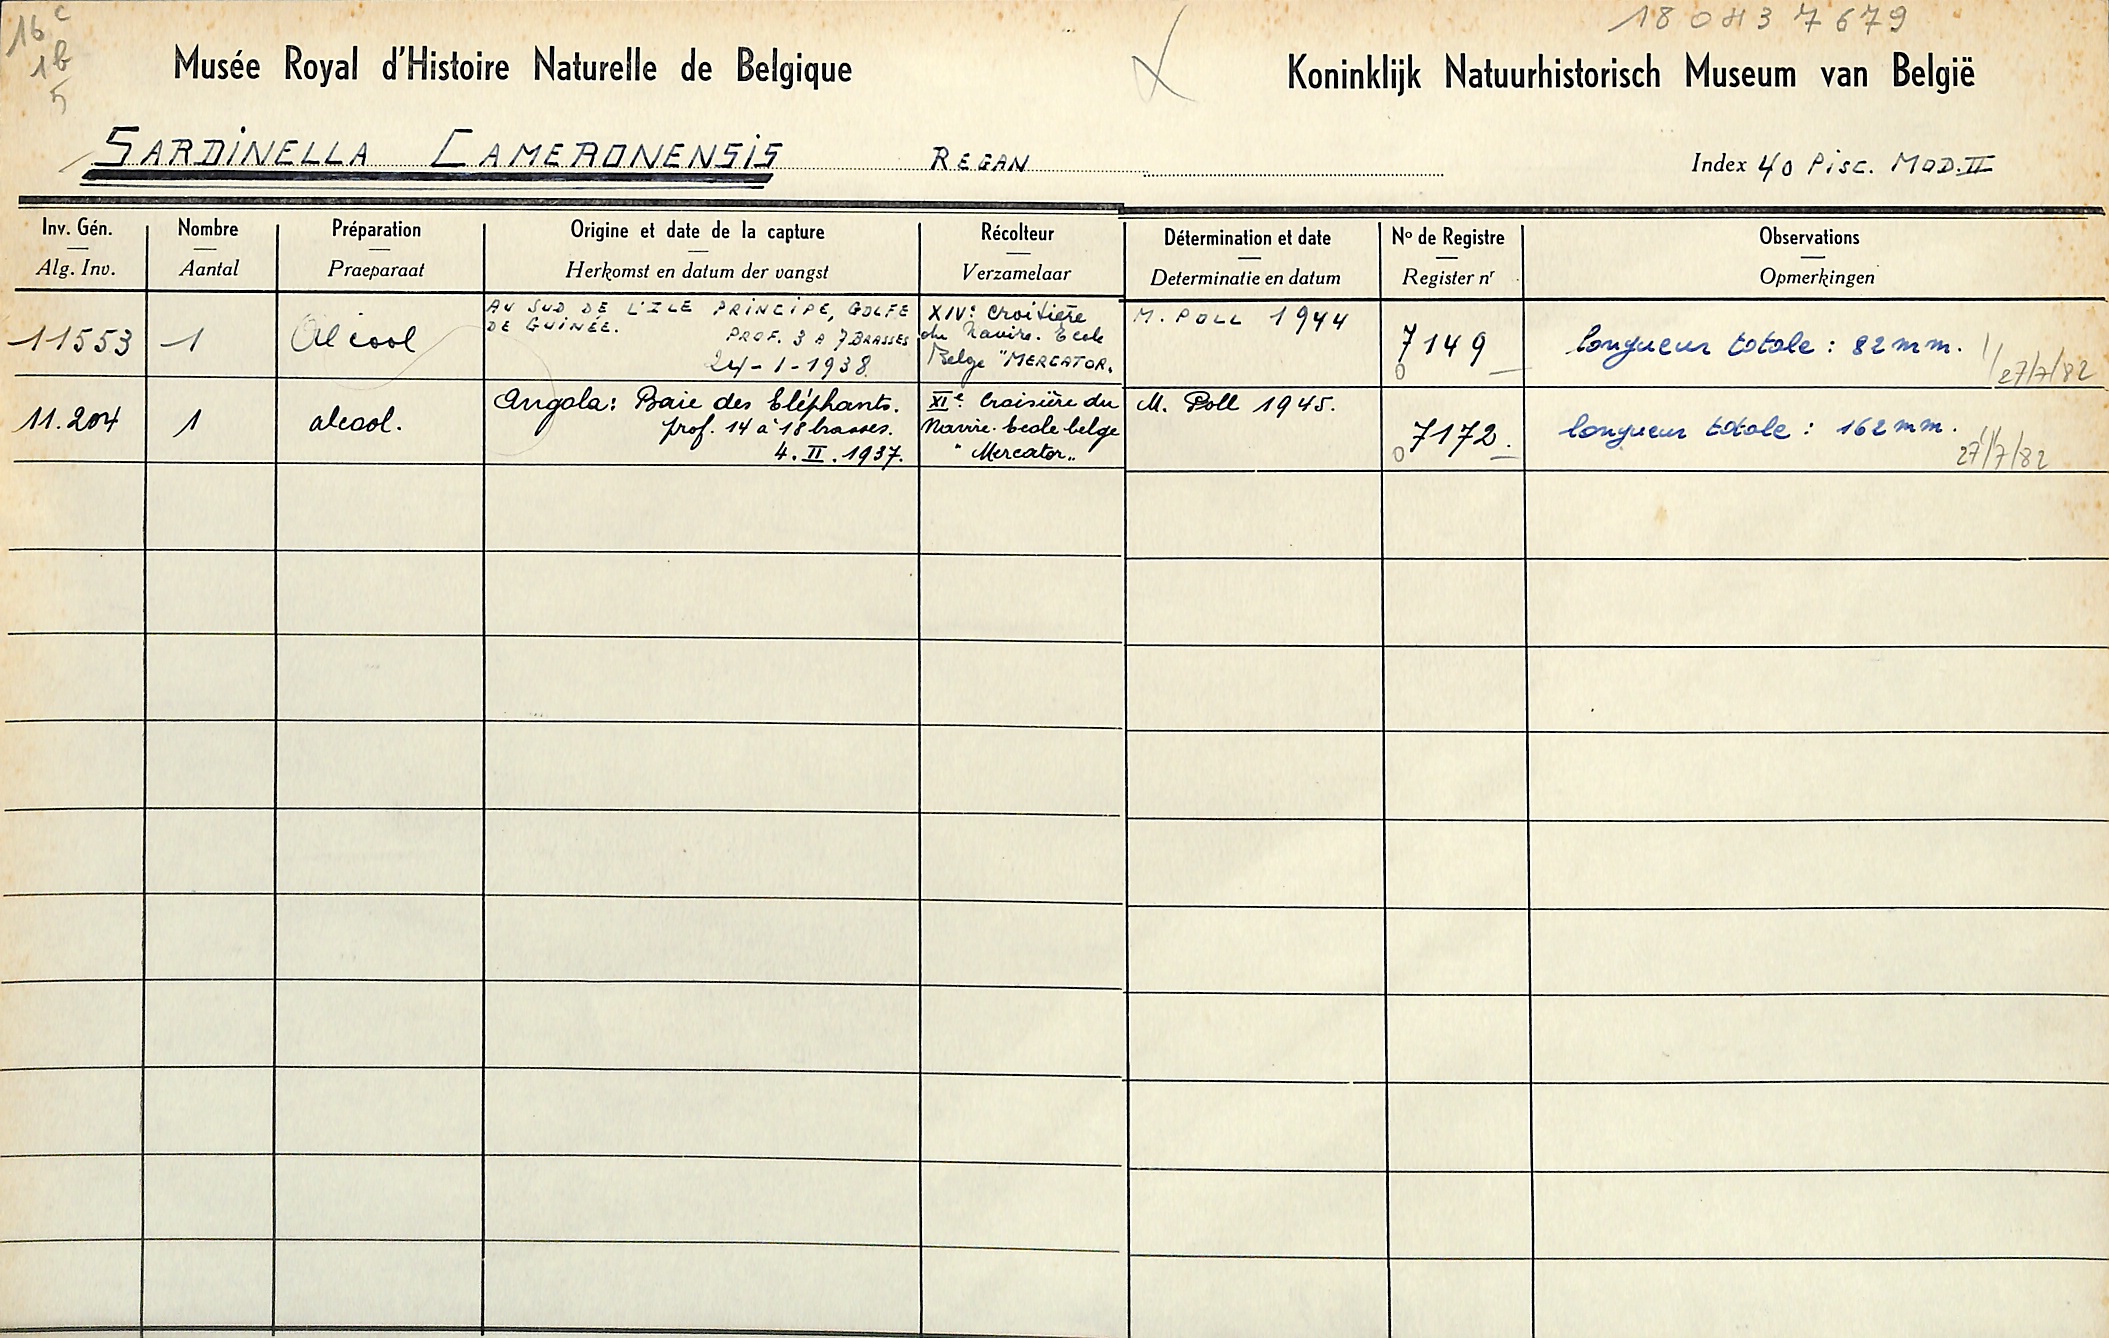 16 c
1b
5
18 0437679
Musée Royal d'Histoire Naturelle de Belgique
Koninklijk Natuurhistorisch Museum van België
SARDINELLA CAMERONENSIS REGAN
Index 40 PISC. MOD. II
Inv. Gén. Nombre Préparation Origine et date de la capture Récolteur Détermination et date No de Registre Observations
Alg. Inv. Aantal Praeparaat Herkomst en datum der vangst Verzamelaar Determinatie en datum Register nr Opmerkingen
11553 1 Alcool
AU SUD DE L'ILE PRINCIPE, GOLFE
DE GUINÉE.
PROF. 3 A 7 BRASSES
24-1-1938
XIVe Croisière
du Navire. Ecole
Belge "MERCATOR.
M. POLL 1944
7149
0
longueur totale : 82 mm.
27/7/82
11.204 1 alcool.
Angola: Baie des Eléphants.
prof. 14 à 18 brasses.
4. II. 1937.
XIe Croisière du
Navire-Ecole belge
"Mercator"
M. Poll 1945.
7172.
0
longueur totale : 162 mm.
27/7/82